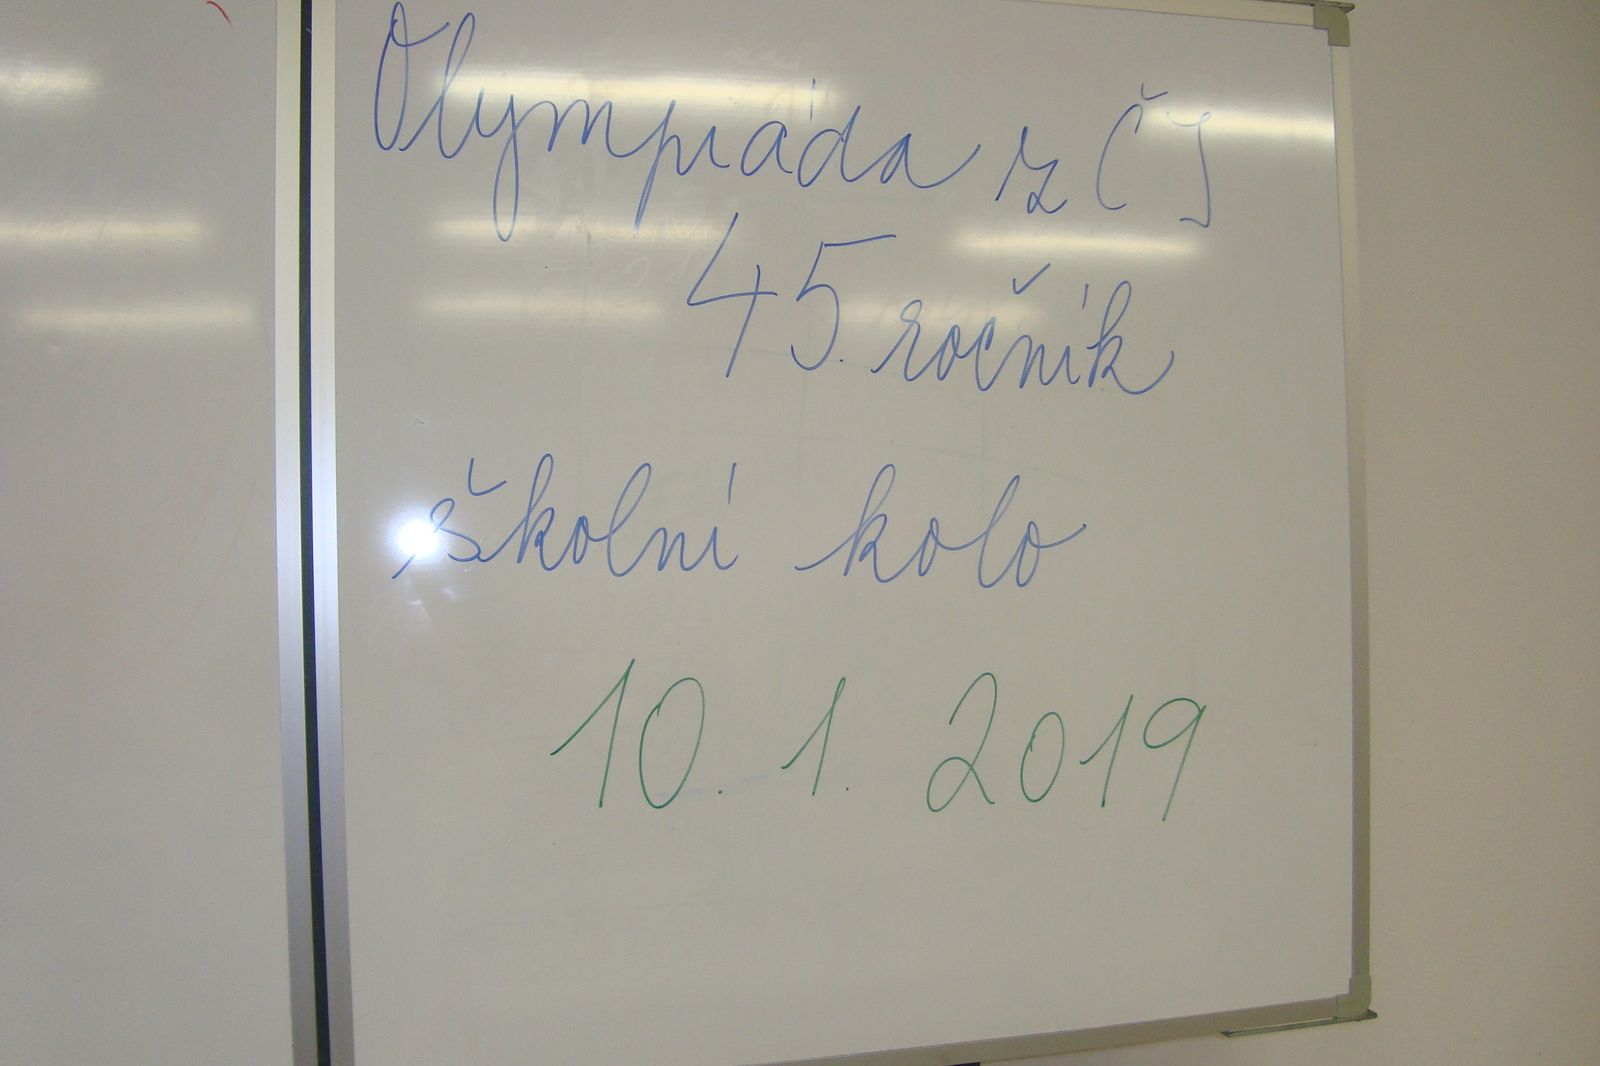 Olympiáda z ČJ
45. ročník
školní kolo
10. 1. 2019